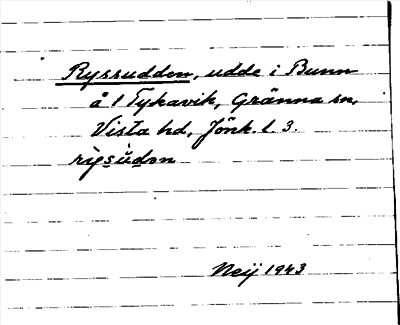 Ryssudden, udde i Bunn
å 1 Tykavik, Gränna sn,
Vista hd, Jönk. l. 3.
rỳsùdən
Neij 1943